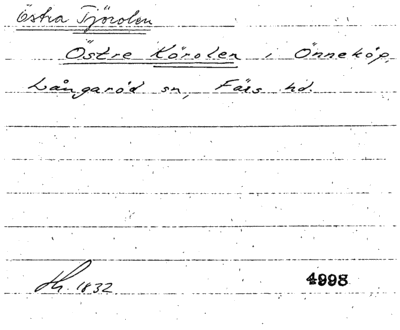 Östra Tjörolen
Östre Kärolen i Önneköp,
Långaröd sn, Färs hd.
Lh. 1832 4998